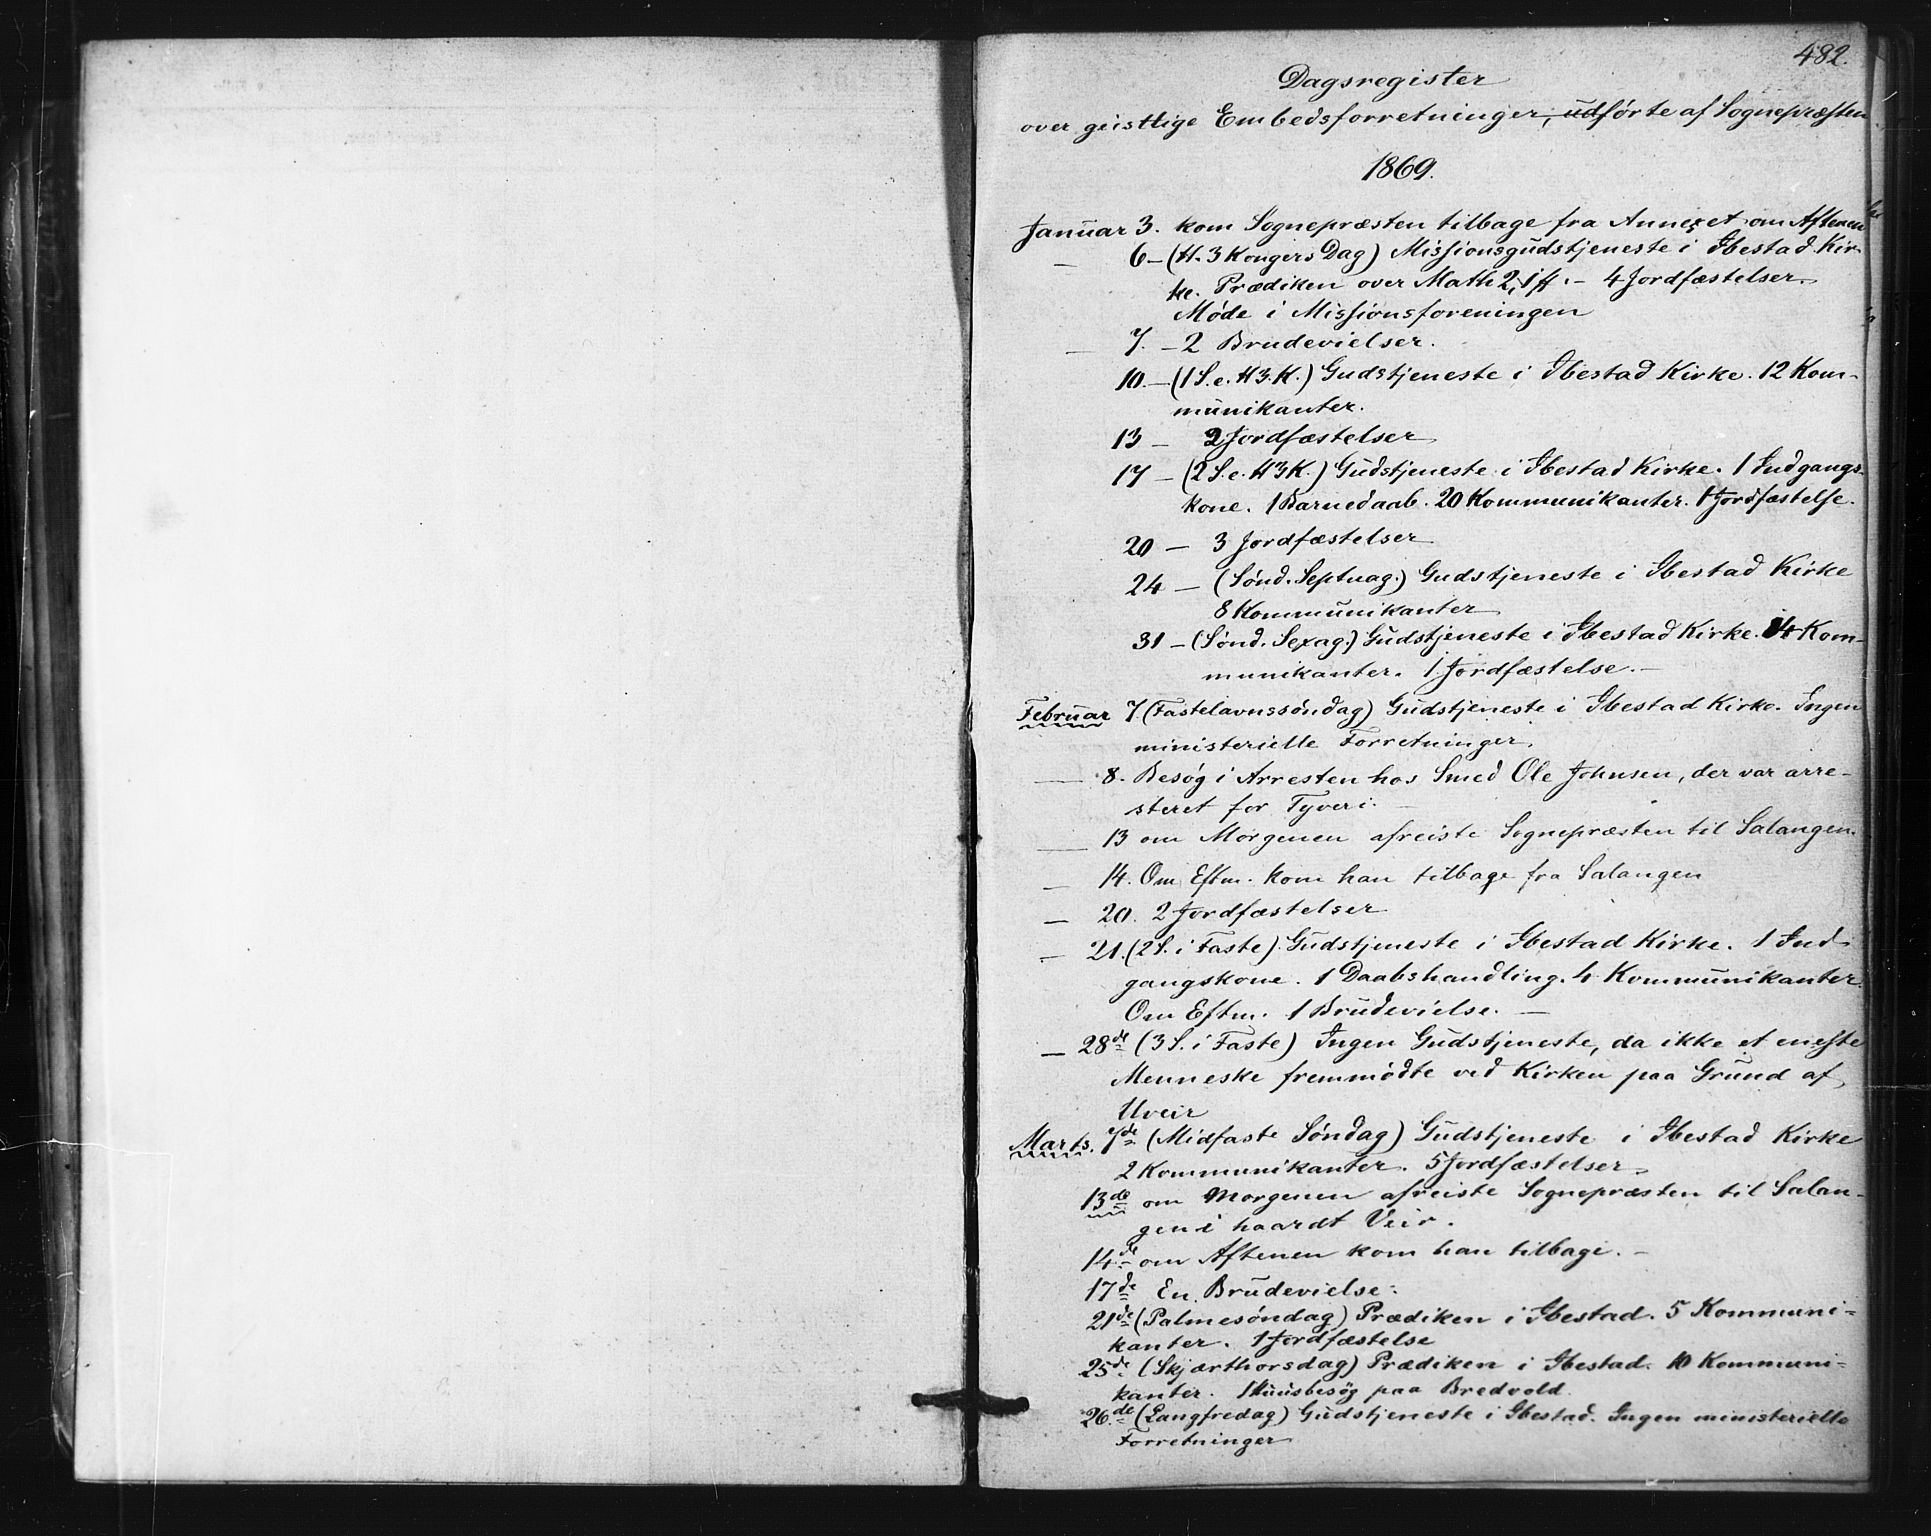 482.
Dagsregister
over geistlige Embedsforretninger, udførte af Sognepræsten
1869.
Januar 3. kom Sognepræsten tilbage fra Annexet om Aftenen
— 6 – (H. 3 Kongers Dag) Missionsgudstjeneste i Ibestad Kir-
ke. Prædiken over Math 2, 1 ff. – 4 Jordfæstelser.
Møde i Missionsforeningen
— 7. – 2 Brudevielser.
10. – (1 S. e. H3.K.) Gudstjeneste i Ibestad Kirke. 12 Kom-
munikanter.
13 – 2 Jordfæstelser
17 – (2 S. e. H3K.) Gudstjeneste i Ibestad Kirke. 1 Indgangs-
kone. 1 Barnedaab. 20 Kommunikanter. 1 Jordfæstelse.
20 – 3 Jordfæstelser
24 – (Sønd. Septuag.) Gudstjeneste i Ibestad Kirke
8 Kommunikanter
31 – (Sønd. Sexag.) Gudstjeneste i Ibestad Kirke. 14 Kom-
munikanter. 1 Jordfæstelse. –
Februar 7 (Fastelavnssøndag) Gudstjeneste i Ibestad Kirke. Ingen
ministerielle Forretninger.
— 8. Besøg i Arresten hos Smed Ole Johnsen, der var arre-
steret for Tyveri. –
— 13 om Morgenen afreiste Sognepræsten til Salangen.
— 14. Om Eftm. kom han tilbage fra Salangen
— 20. 2 Jordfæstelser
— 21. (2 S. i Faste) Gudstjeneste i Ibestad Kirke. 1 Ind-
gangskone. 1 Daabshandling. 4 Kommunikanter.
Om Eftm. 1 Brudevielse. —
— 28de (3 S. i Faste) Ingen Gudstjeneste, da ikke et eneste
Menneske fremmødte ved Kirken paa Grund af
Uveir
Marts. 7de (Midfaste Søndag) Gudstjeneste i Ibestad Kirke
2 Kommunikanter. 5 Jordfæstelser.
13de om Morgenen afreiste Sognepræsten til Salan-
gen i haardt Veir.
14de om Aftenen kom han tilbage. –
17de En Brudevielse.
21de (Palmesøndag) Prædiken i Ibestad. 5 Kommuni-
kanter. 1 Jordfæstelse
25de (Skjærthorsdag) Prædiken i Ibestad. 10 Kommuni-
kanter. 1 Huusbesøg paa Bredvold.
26de (Langfredag) Gudstjeneste i Ibestad. Ingen ministerielle
Forretninger